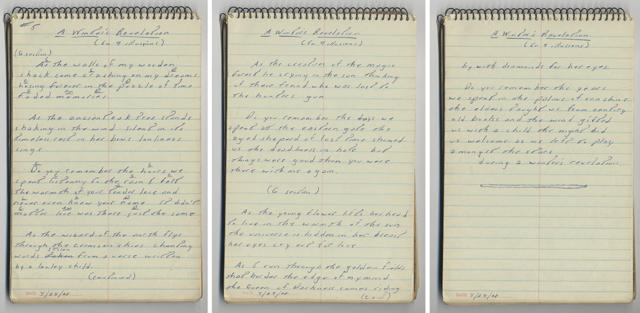 #5
A Winter's Revelation
(G section)
As the walls of my wooden
shack come crashing on my dreams
having forever in the puzzle of time
faded memories.
As the ancient oak tree stands
shaking in the wind silent in its
timeless rest in her bows
sings.
Do you remember the hours we
spent listening to the rain I felt
the warmth of your tender love and
never even knew your name it didn't
matter love was there just the same
As the wizard of the north flys
through the crimson skies chanting
words from a verse written
by a lonely child.
(continued)
3/23/70
A Winters Revelation
As the creation of the magic
forest lie crying in the sun thinking
of there friend who was lost to
the hunters gun.
Do you remember the days we
spent at the eastern gate the
eyed shepard of lost time showed
us the doorways in hate I
always were good then you were
there with me again.
(G section)
As the young flower lifts her head
to live in the warmth of the sun
the universe is hidden in her
her eyes cry out for love
As I run through the golden fields
that border the edge of my mind
the Queen of Darkness comes riding
(Con)
3/23/70
A Winter's Revelation
by with diamonds for her eyes.
Do you remember the years
we spent in the palms of sunshine
the elders taught us from
old books and the wind gifted
us with a child the night bid
us welcome as we left to play
amongst the stars
during a winters revelation.